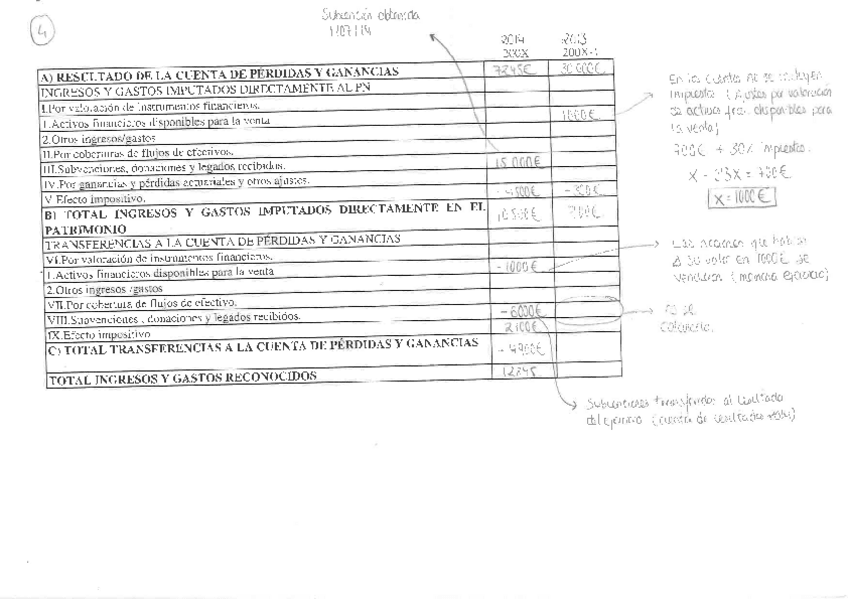 4
Subvención obtenida
1/07/14
2014 2013
200X 200X-1
A) RESULTADO DE LA CUENTA DE PÉRDIDAS Y GANANCIAS 7245€ 30 000€
INGRESOS Y GASTOS IMPUTADOS DIRECTAMENTE AL PN
I.Por valoración de instrumentos financieros.
1.Activos financieros disponibles para la venta 1000€
2.Otros ingresos/gastos
II.Por coberturas de flujos de efectivos.
III.Subvenciones, donaciones y legados recibidos. 15 000€
IV.Por ganancias y pérdidas actuariales y otros ajustes.
V Efecto impositivo. - 4500€ - 300€
B) TOTAL INGRESOS Y GASTOS IMPUTADOS DIRECTAMENTE EN EL
PATRIMONIO 10 500€ 700€
TRANSFERENCIAS A LA CUENTA DE PÉRDIDAS Y GANANCIAS
VI.Por valoración de instrumentos financieros.
1.Activos financieros disponibles para la venta - 1000€
2.Otros ingresos /gastos
VII.Por cobertura de flujos de efectivo.
VIII.Subvenciones , donaciones y legados recibidos. - 6000€
IX.Efecto impositivo 2100€
C) TOTAL TRANSFERENCIAS A LA CUENTA DE PÉRDIDAS Y GANANCIAS - 4900€
TOTAL INGRESOS Y GASTOS RECONOCIDOS 12845
En las cuentas no se incluyen
impuestos (Ajustes por valoración
de activos disponibles para
la venta)
700€ + 30% impuestos.
X = 1000€
Las acciones que habían
Δ su valor en 1000€ se
vendieron (ejercicio)
no se
Subvenciones transferidas al resultado
del ejercicio (cuenta de resultados)